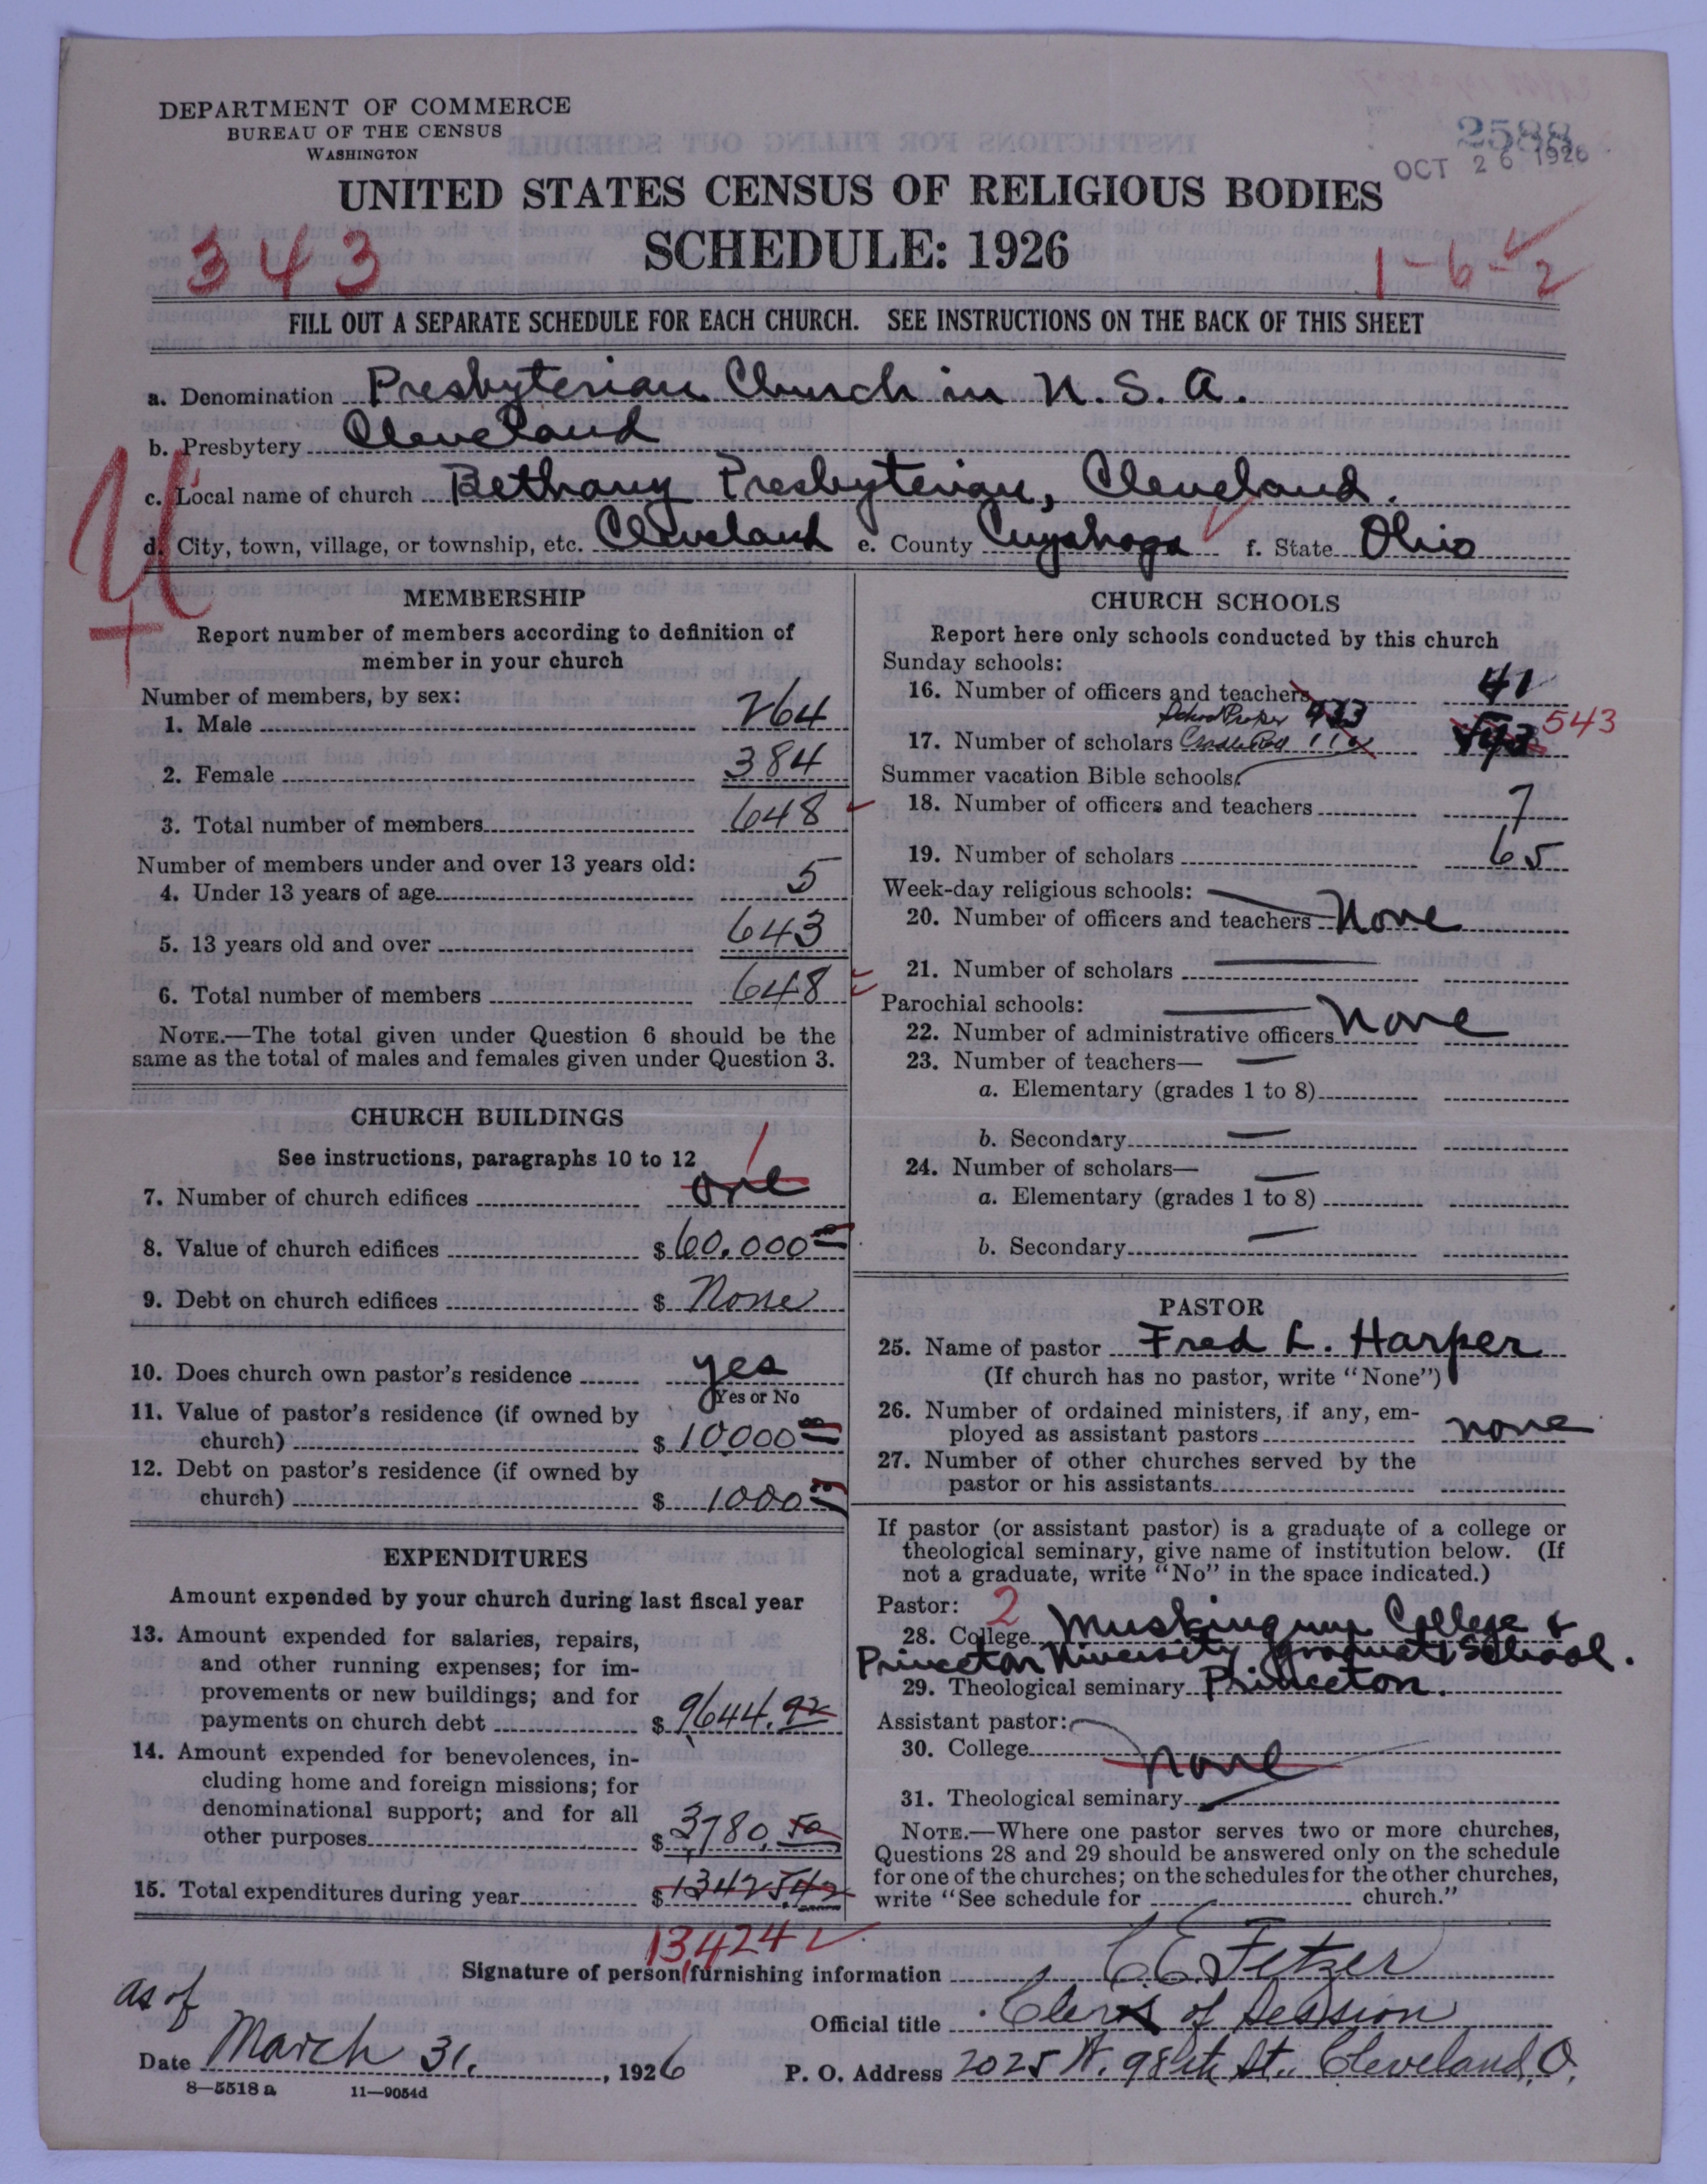 DEPARTMENT OF COMMERCE
BUREAU OF THE CENSUS
WASHINGTON
2588
OCT 26 1926
UNITED STATES CENSUS OF RELIGIOUS BODIES
SCHEDULE: 1926
343
1-6-
2
FILL OUT A SEPARATE SCHEDULE FOR EACH CHURCH. SEE INSTRUCTIONS ON THE BACK OF THIS SHEET
a. Denomination Presbyterian Church in U. S. A.
b. Presbytery Cleveland
c. Local name of church Bethany Presbyterian, Cleveland.
d. City, town, village, or township, etc. Cleveland e. County Cuyahoga f. State Ohio
MEMBERSHIP
Report number of members according to definition of
member in your church
Number of members, by sex:
1. Male 264
2. Female 384
3. Total number of members 648
Number of members under and over 13 years old:
4. Under 13 years of age 5
5. 13 years old and over 643
6. Total number of members 648
NOTE.—The total given under Question 6 should be the
same as the total of males and females given under Question 3.
CHURCH BUILDINGS
See instructions, paragraphs 10 to 12
7. Number of church edifices one 1
8. Value of church edifices $60.000 00
9. Debt on church edifices $ None
10. Does church own pastor's residence yes
Yes or No
11. Value of pastor's residence (if owned by
church) $10000 00
12. Debt on pastor's residence (if owned by
church) $1000 00
EXPENDITURES
Amount expended by your church during last fiscal year
13. Amount expended for salaries, repairs,
and other running expenses; for im-
provements or new buildings; and for
payments on church debt $9644.92
14. Amount expended for benevolences, in-
cluding home and foreign missions; for
denominational support; and for all
other purposes $3780.50
15. Total expenditures during year $13425.42
13,424
CHURCH SCHOOLS
Report here only schools conducted by this church
Sunday schools:
16. Number of officers and teachers 41
School Proper 433
17. Number of scholars Cradle Roll 110 543
Summer vacation Bible schools:
18. Number of officers and teachers 7
19. Number of scholars 65
Week-day religious schools:
20. Number of officers and teachers None
21. Number of scholars
Parochial schools:
22. Number of administrative officers None
23. Number of teachers—
a. Elementary (grades 1 to 8)
b. Secondary
24. Number of scholars—
a. Elementary (grades 1 to 8)
b. Secondary
PASTOR
25. Name of pastor Fred L. Harper
(If church has no pastor, write "None")
26. Number of ordained ministers, if any, em-
ployed as assistant pastors none
27. Number of other churches served by the
pastor or his assistants
If pastor (or assistant pastor) is a graduate of a college or
theological seminary, give name of institution below. (If
not a graduate, write "No" in the space indicated.)
Pastor: 2
28. College Muskingum College &
Princeton University Graduate School.
29. Theological seminary Princeton.
Assistant pastor:
30. College none
31. Theological seminary
NOTE.—Where one pastor serves two or more churches,
Questions 28 and 29 should be answered only on the schedule
for one of the churches; on the schedules for the other churches,
write "See schedule for church."
Signature of person furnishing information C. E. Fetzer
Official title Clerk of Session
as of
Date March 31, 1926 P. O. Address 2025 W. 98th St., Cleveland, O.
8—5518 a 11—9054d